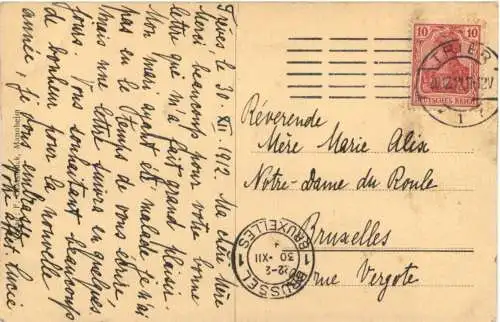 Trèves le 30. XII. 1912. Ma chère Mère
Merci beaucoup pour votre bonne
lettre qui m'a fait grand plaisir.
Mon mari ayant été malade je n'ai
pas eu le temps de vous écrire
mais une lettre suivra en quelques
jours. Vous souhaitant beaucoup
de bonheur pour la nouvelle
année, je vous embrasse
Votre affect. Lucie
10 10
DEUTSCHES REICH
TRIER
Révérende
Mère Marie Alix
Notre-Dame du Roule
Bruxelles
rue Vergote
1 BRUXELLES 1
12-2
30-XII
BRUSSEL